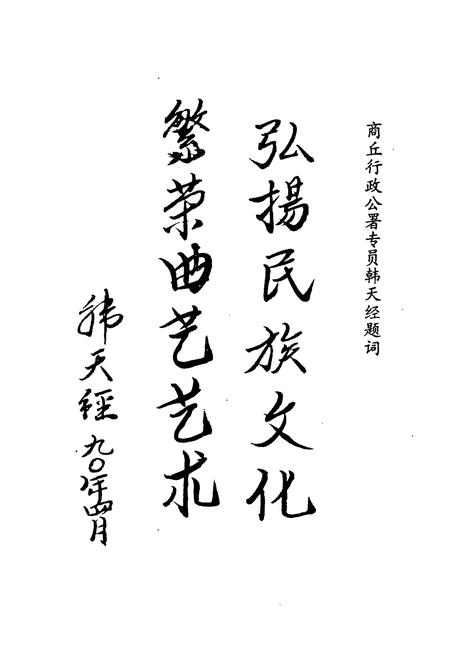 商丘行政公署专员韩天经题词
弘揚民族文化
繁荣曲艺艺术
韩天经 九〇年四月